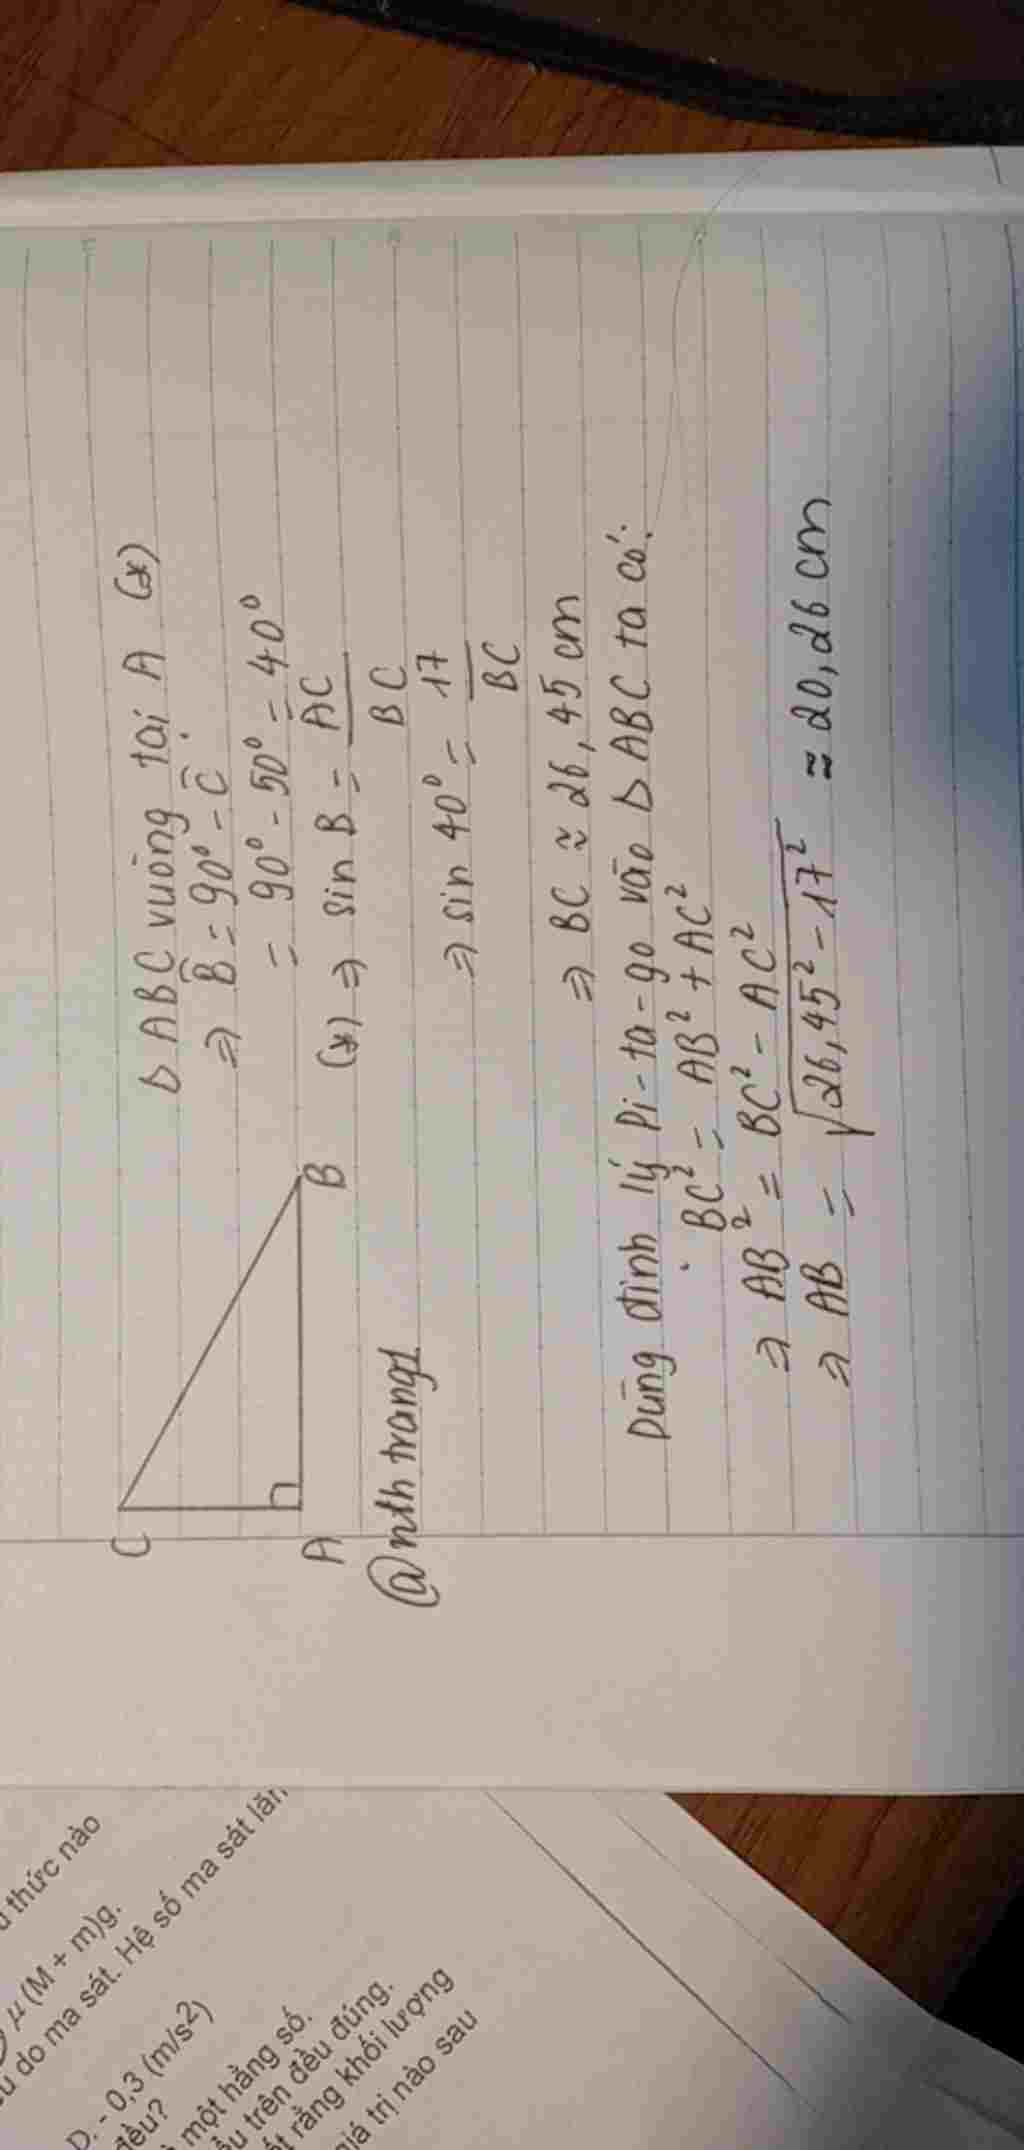 C
A
B
@nth trang1
Δ ABC vuông tại A (*)
⇒ B̂ = 90° - Ĉ
= 90° - 50° = 40°
(*) ⇒ sin B = AC/BC
⇒ sin 40° = 17/BC
⇒ BC ≈ 26,45 cm
Dùng định lý Pi-ta-go vào Δ ABC ta có:
BC² = AB² + AC²
⇒ AB² = BC² - AC²
⇒ AB = √26,45² - 17² ≈ 20,26 cm
thức nào
μ (M + m)g.
do ma sát. Hệ số ma sát lăn
D. - 0,3 (m/s2)
đều?
một hằng số.
trên đều đúng.
rằng khối lượng
giá trị nào sau